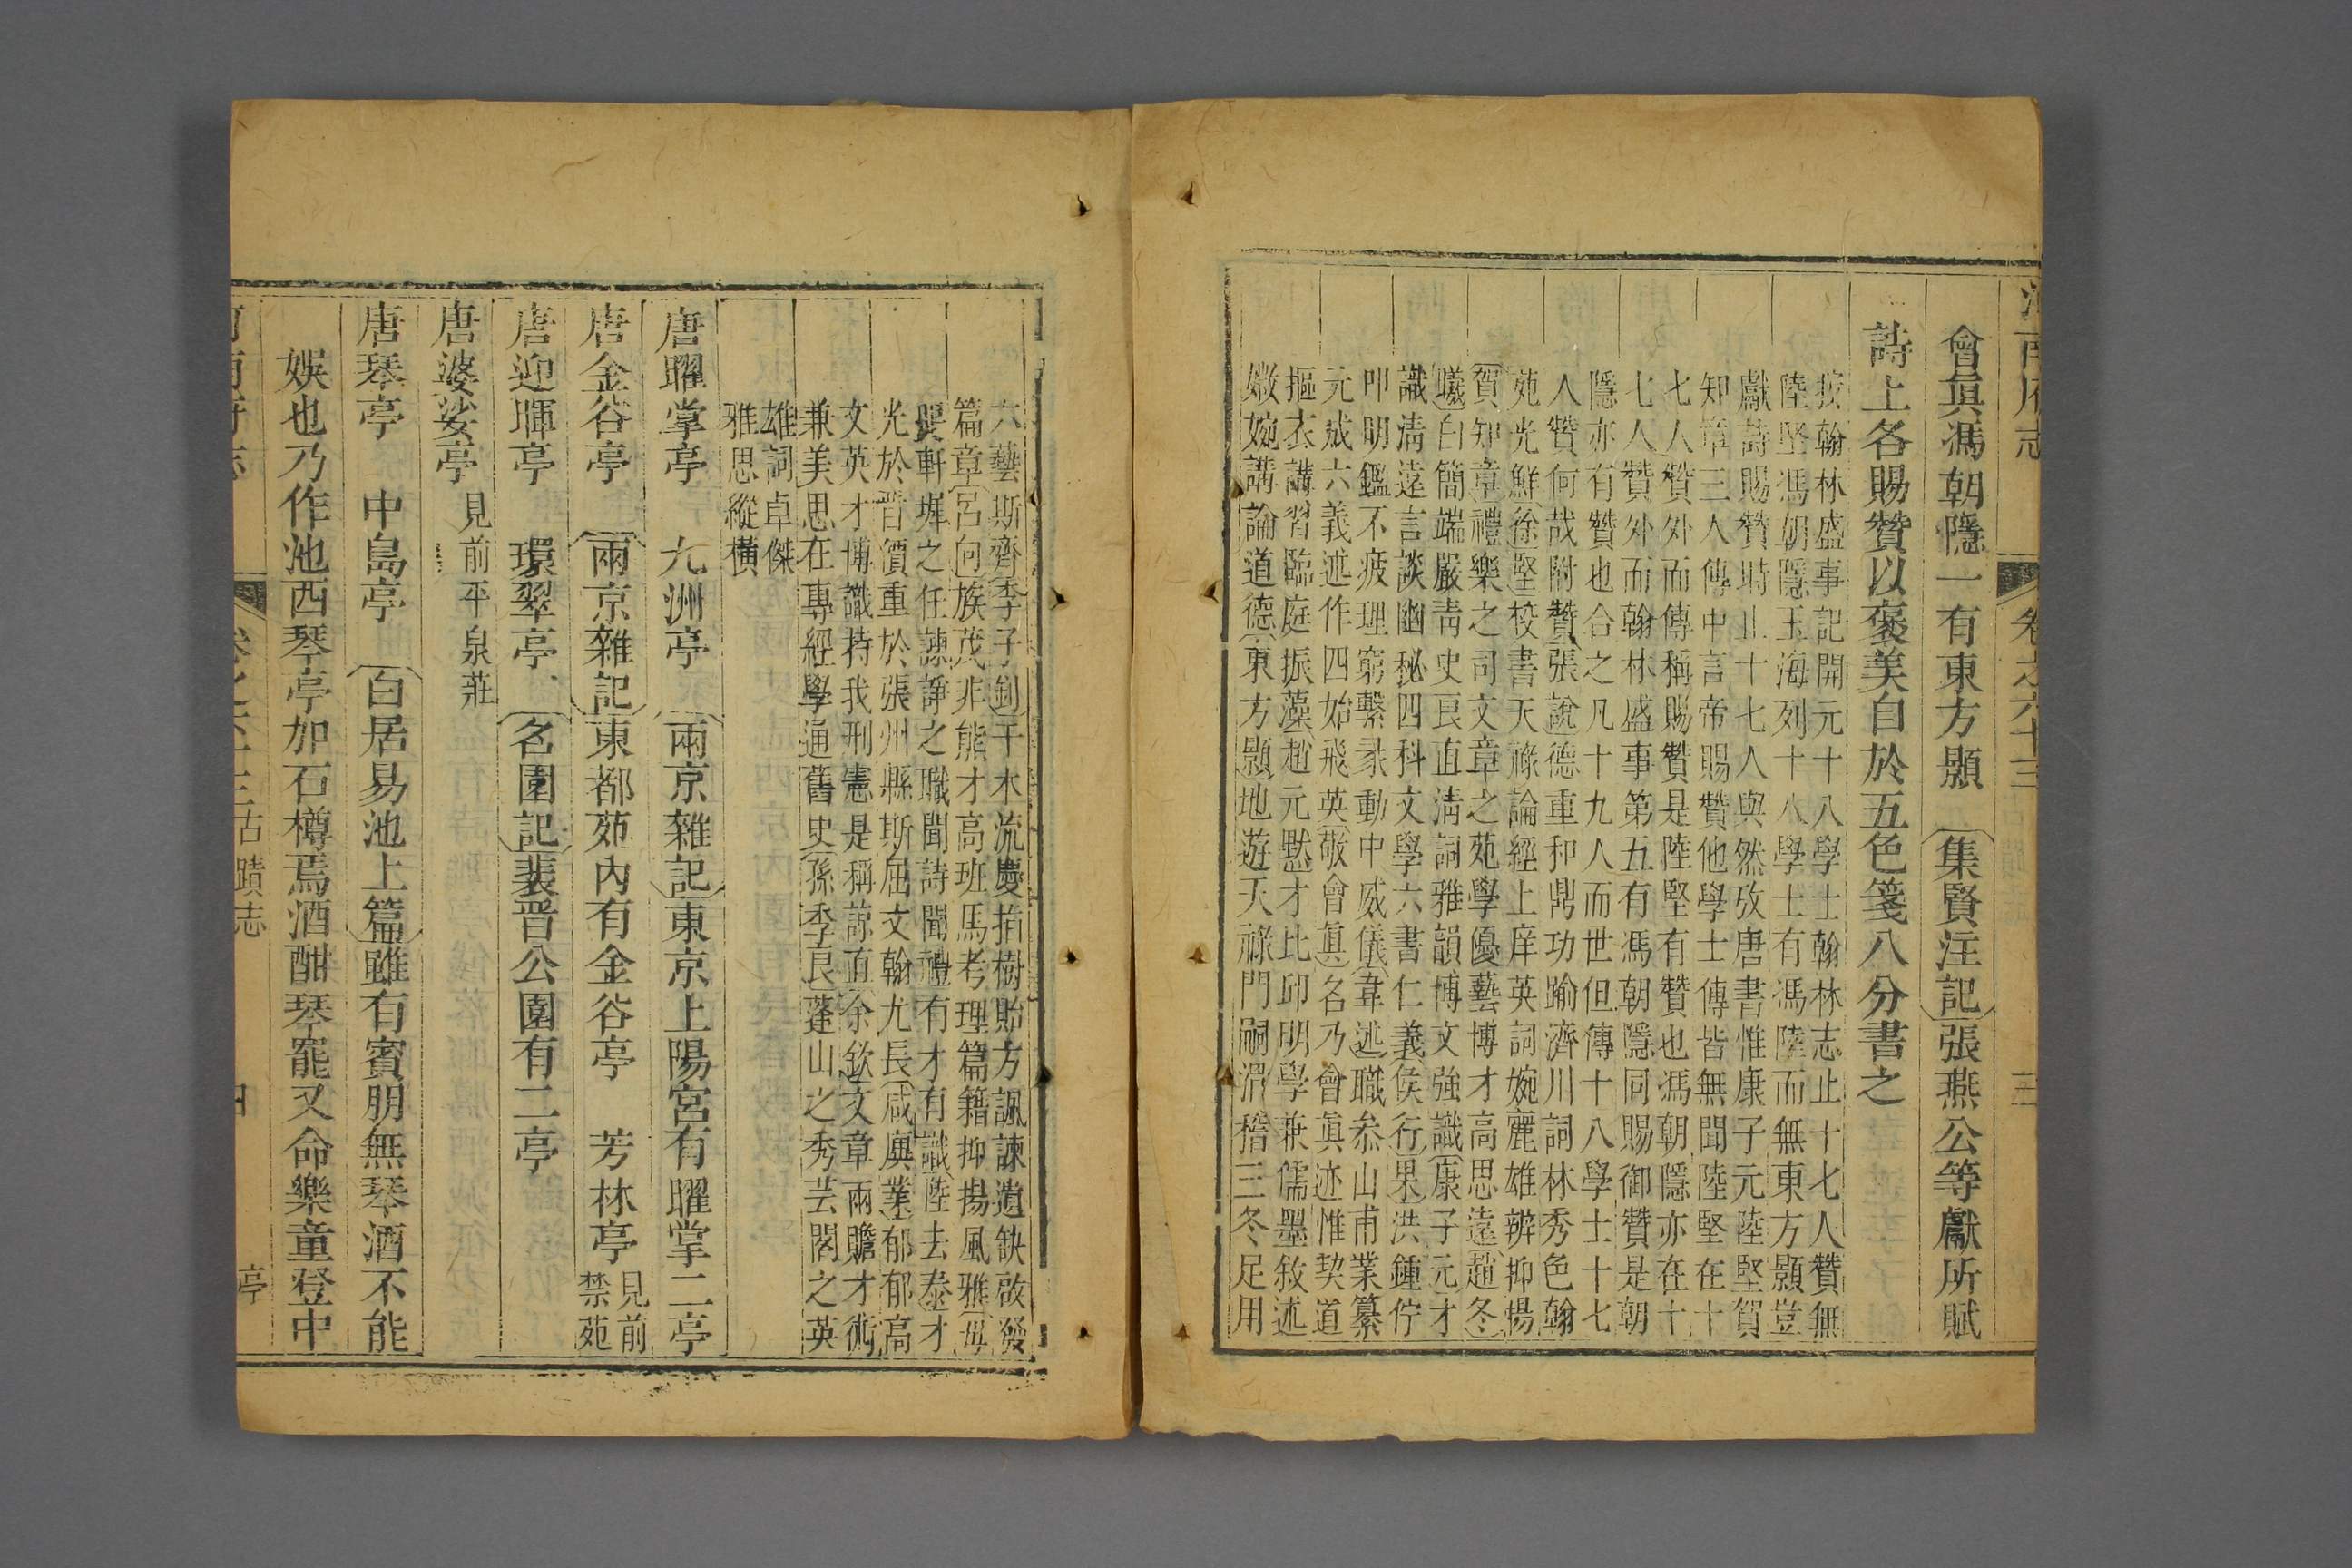 河南府志 卷之六十三 三
會眞馮朝隱一有東方顥 集賢注記張燕公等獻所賦
詩上各賜贊以褒美自於五色箋八分書之
按翰林盛事記開元十八學士翰林志止十七人贊無
陸堅馮朝隱玉海列十八學士有馮陸而無東方顥豈
獻詩賜贊時止十七人與然攷唐書惟康子元陸堅賀
知章三人傳中言帝賜贊他學士傳皆無聞陸堅在十
七人贊外而傳稱賜贊是陸堅有贊也馮朝隱亦在十
七人贊外而翰林盛事第五有馮朝隱同賜御贊是朝
隱亦有贊也合之凡十九人而世但傳十八學士十七
人贊何哉附贊張說德重和鼎功踰濟川詞林秀色翰
苑光鮮徐堅校書天祿論經上庠英詞婉麗雄辨抑揚
賀知章禮樂之司文章之苑學優藝博才高思遠趙冬
曦白簡端嚴靑史良直淸詞雅韻博文強識康子元才
識淸遠言談幽秘四科文學六書仁義侯行果洪鍾佇
叩明鑑不疲理窮繫彖動中威儀韋述職叅山甫業纂
元成六義述作四始飛英敬會眞名乃會眞迹惟契道
摳衣講習臨庭振藻趙元默才比卭明學兼儒墨敘述
嫩婉講論道德東方顥地遊天祿門嗣滑稽三冬足用
六藝斯齊李子釗干木流慶指樹貽方諷諫遺缺啟發
篇章呂向族茂非熊才高班馬考理篇籍抑揚風雅毋
煚軒墀之任諫諍之職聞詩聞禮有才有識陸去泰才
光於晉價重於張州縣斯屈文翰尤長咸廙業郁郁高
文英才博識持我刑憲是稱諒直余欽文章兩贍才術
兼美思在專經學通舊史孫季良蓬山之秀芸閣之英
雄詞卓傑
雅思縱橫
唐曜掌亭 九洲亭 兩京雜記東京上陽宮有曜掌二亭
唐金谷亭 兩京雜記東都苑內有金谷亭 芳林亭 見前禁苑
唐迎暉亭 環翠亭 名園記裴晉公園有二亭
唐婆娑亭 見前平泉莊
唐琴亭 中島亭 白居易池上篇雖有賓朋無琴酒不能
娛也乃作池西琴亭加石樽焉酒酣琴罷又命樂童登中
河南府志 卷之六十三古蹟志 亭 四